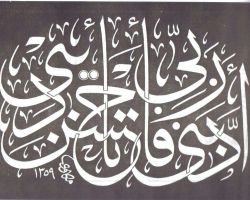 أدبني ربي فأحسن تأديبي
١٣٥٩